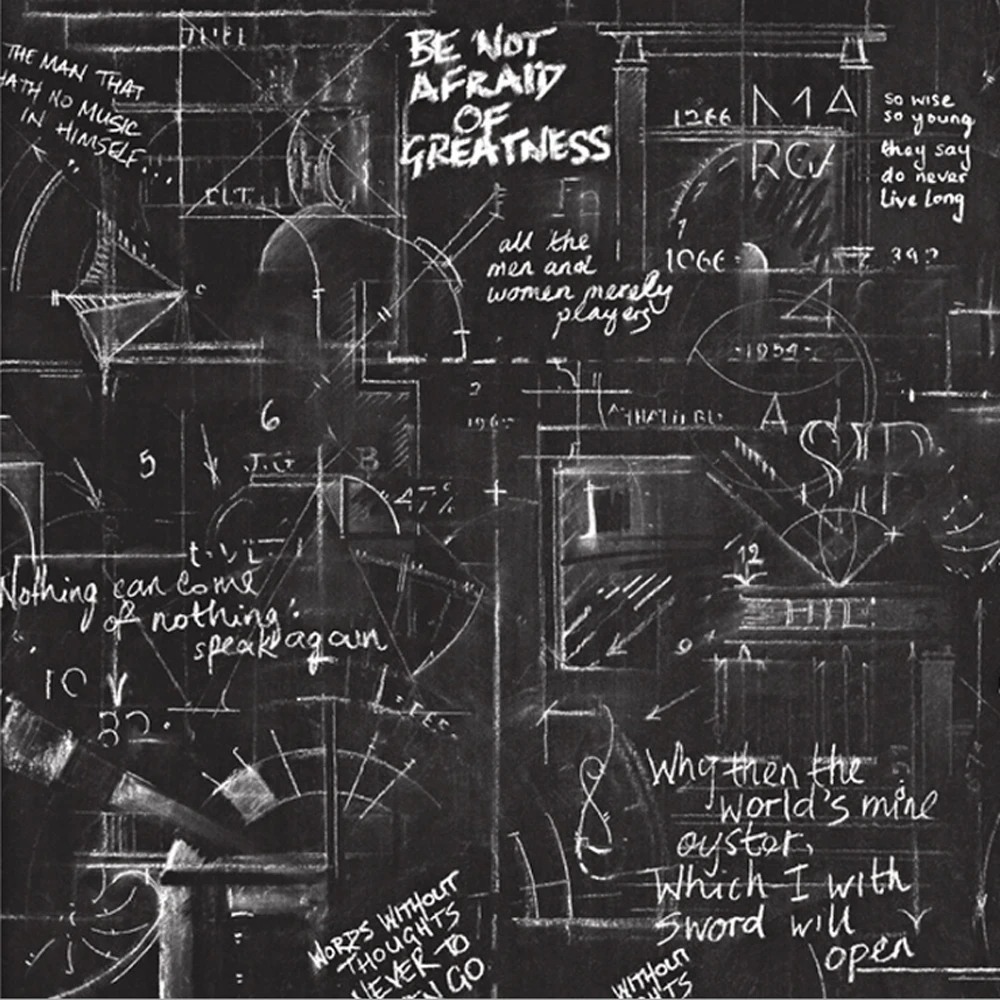 THE MAN THAT
HATH NO MUSIC
IN HIMSELF...
BE NOT
AFRAID
OF
GREATNESS
1266
MA
RGV
so wise
so young
they say
do never
live long
all the
men and
women merely
players
1066
392
4
-1954-
2
A
6
5
B
12
Nothing can come
of nothing:
speak again
10
Why then the
world's mine
oyster,
Which I with
sword will
open
WORDS WITHOUT
THOUGHTS
NEVER TO
GO
WITHOUT